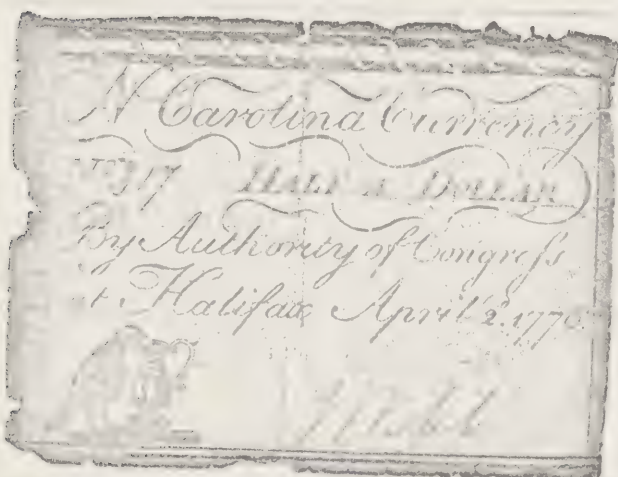 N Carolina Currency
No 317 HALF A DOLLAR
By Authority of Congreſs
at Halifax April 2d. 1776